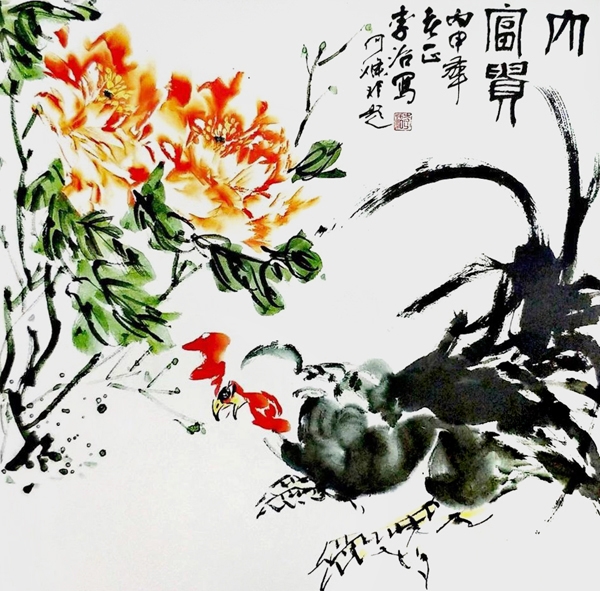 大
富貴
丙申年
正
李治寫
何 題